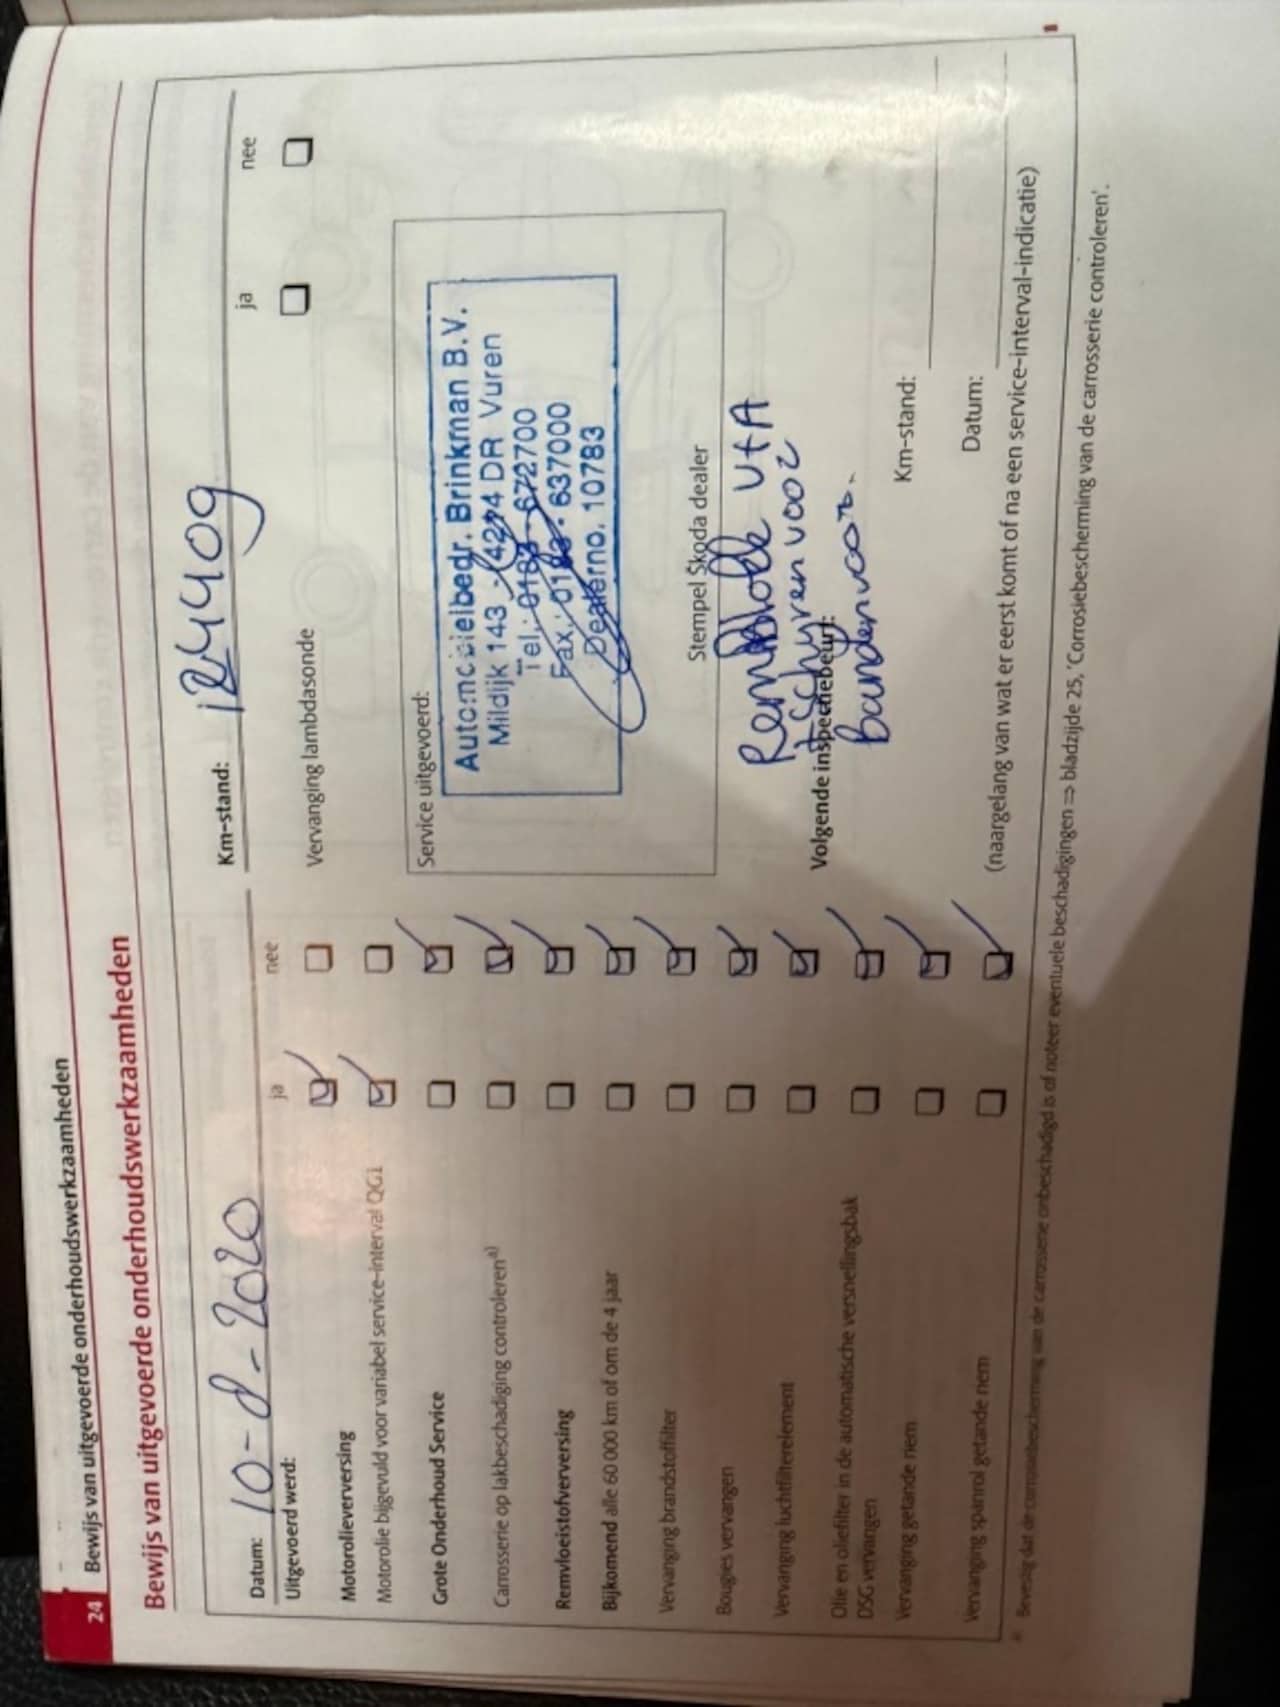 24
Bewijs van uitgevoerde onderhoudswerkzaamheden
Bewijs van uitgevoerde onderhoudswerkzaamheden
Datum: 10-8-2020
Km-stand: 124409
Uitgevoerd werd:
ja nee
Motorolieverversing
Motorolie bijgevuld voor variabel service-interval QG1
Grote Onderhoud Service
Carrosserie op lakbeschadiging controleren a)
Remvloeistofverversing
Bijkomend alle 60 000 km of om de 4 jaar
Vervanging brandstoffilter
Bougies vervangen
Vervanging luchtfilterelement
Olie en oliefilter in de automatische versnellingsbak
DSG vervangen
Vervanging getande riem
Vervanging spanrol getande riem
ja nee
Vervanging lambdasonde
Service uitgevoerd:
Automobielbedr. Brinkman B.V.
Mildijk 143 - 4214 DR Vuren
Tel.: 0183 - 672700
Fax.: 0183 - 637000
Dealerno. 10783
Stempel Škoda dealer
Remblokk V+A
+ Schyven voor
Volgende inspectiebeurt:
banden voor.
Km-stand:
Datum:
(naargelang van wat er eerst komt of na een service-interval-indicatie)
a) Bevestig dat de corrosiebescherming van de carrosserie onbeschadigd is of noteer eventuele beschadigingen ⇒ bladzijde 25, 'Corrosiebescherming van de carrosserie controleren'.